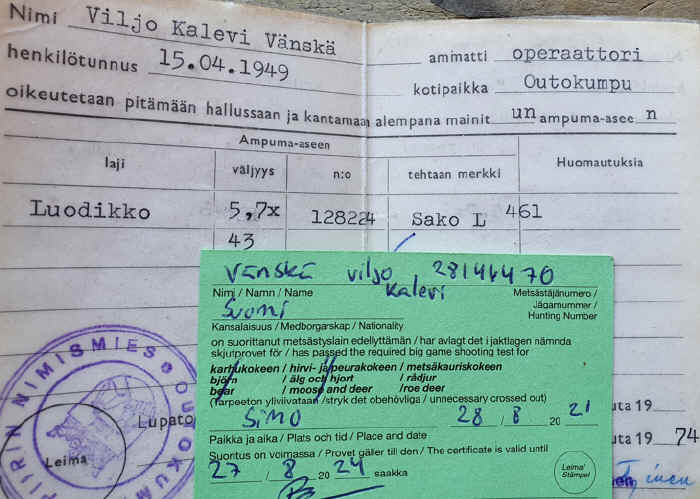 Nimi Viljo Kalevi Vänskä
henkilötunnus 15.04.1949
ammatti operaattori
kotipaikka Outokumpu
oikeutetaan pitämään hallussaan ja kantamaan alempana mainit un ampuma-asee n
Ampuma-aseen
laji väljyys n:o tehtaan merkki Huomautuksia
Luodikko 5,7x 128224 Sako L 461
43
Vänskä Viljo 28144470
Kalevi
Nimi / Namn / Name
Metsästäjänumero /
Jägarnummer /
Hunting Number
Suomi
Kansalaisuus / Medborgarskap / Nationality
on suorittanut metsästyslain edellyttämän / har avlagt det i jaktlagen nämnda
skjutprovet för / has passed the required big game shooting test for
karhukokeen / hirvi- ja peurakokeen / metsäkauriskokeen
björn / älg och hjort / rådjur
bear / moose and deer / roe deer
(Tarpeeton yliviivataan / stryk det obehövliga / unnecessary crossed out)
Simo 28 / 8 20 21
Paikka ja aika / Plats och tid / Place and date
Suoritus on voimassa / Provet gäller till den / The certificate is valid until
27 / 8 20 24 saakka
Leima/
Stämpel
PIIRIN NIMISMIES OUTOKUM
Lupato
Leima
uta 19
uta 19 74
inen